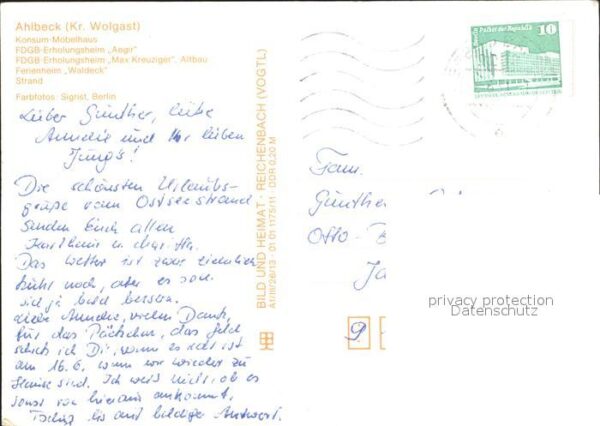 Ahlbeck (Kr. Wolgast)
Konsum-Möbelhaus
FDGB-Erholungsheim „Aegir"
FDGB-Erholungsheim „Max Kreuziger", Altbau
Ferienheim „Waldeck"
Strand
Farbfotos: Sigrist, Berlin
Lieber Günther, liebe
Annelie und Ihr lieben
Jung's!
Die schönsten Urlaubs-
grüße vom Ostseestrand
senden Euch allen
Karlheinz u.
Das Wetter ist zwar ziemlich
kühl noch, aber es soll
sich ja bald bessern.
Liebe Annelie, vielen Dank
für das Päckchen, das Geld
schick ich Dir, wenn es recht ist
am 16.6. wenn wir wieder zu
Hause sind. Ich weiß nicht, ob es
sonst von hieraus ankommt.
Tschüß bis auf baldige Antwort.
BILD UND HEIMAT · REICHENBACH (VOGTL)
A1/III/26/13 · 01 01 1175/11 · DDR 0,20 M
Berlin Palast der Republik
10
Fam.
Günther
Otto-
privacy protection
Datenschutz
9